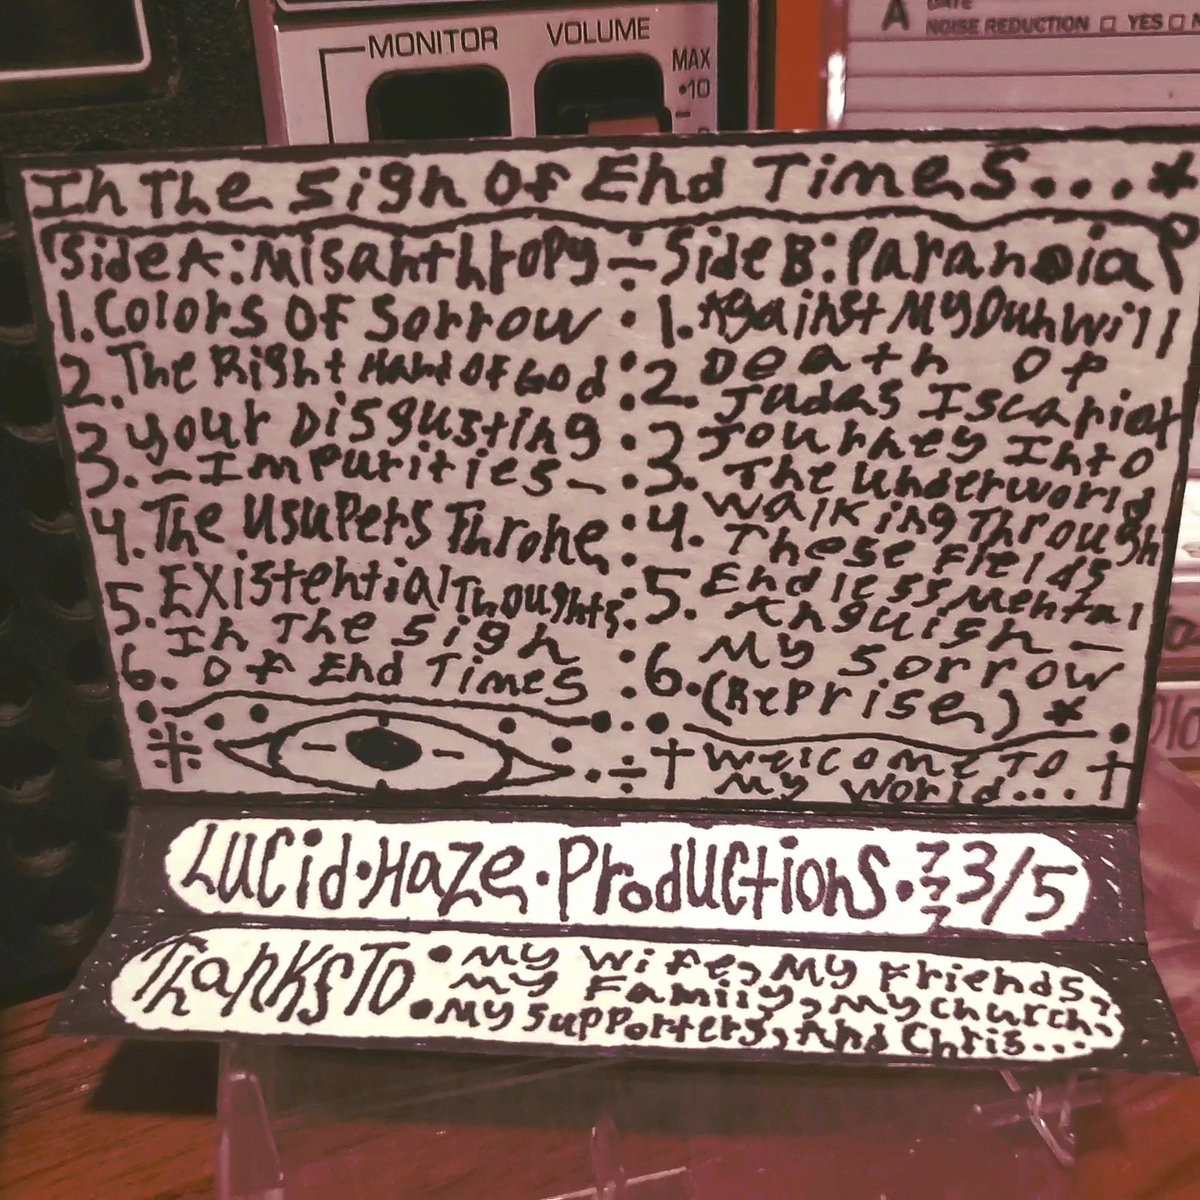 MONITOR VOLUME
MAX
•10
A DATE
NOISE REDUCTION □ YES □
In The Sign Of End Times...*
Side A: Misanthropy ÷ Side B: Paranoia
1. Colors Of Sorrow
2. The Right Hand Of God
3. Your Disgusting
- Impurities -
4. The Usupers Throne
5. Existential Thoughts
6. In The Sign
Of End Times
1. Against My Own Will
2. Death Of
Judas Iscariot
3. Journey Into
The Underworld
4. Walking Through
These Fields
5. Endless Mental
Anguish -
6. My Sorrow
(Reprise) *
† Welcome To †
My World...
Lucid • Haze • Productions • 3/5
Thanks To • My Wife, My Friends,
My Family, My Church,
• My Supporters, And Chris...